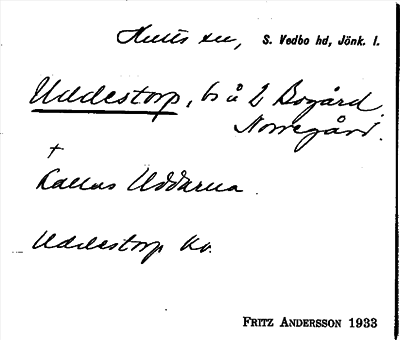 Hults sn, S. Vedbo hd, Jönk. l.
Uddestorp, bs å 2 Bogård,
Norregård.
+
Kallas Uddarna.
Uddestorp kv.
FRITZ ANDERSSON 1933